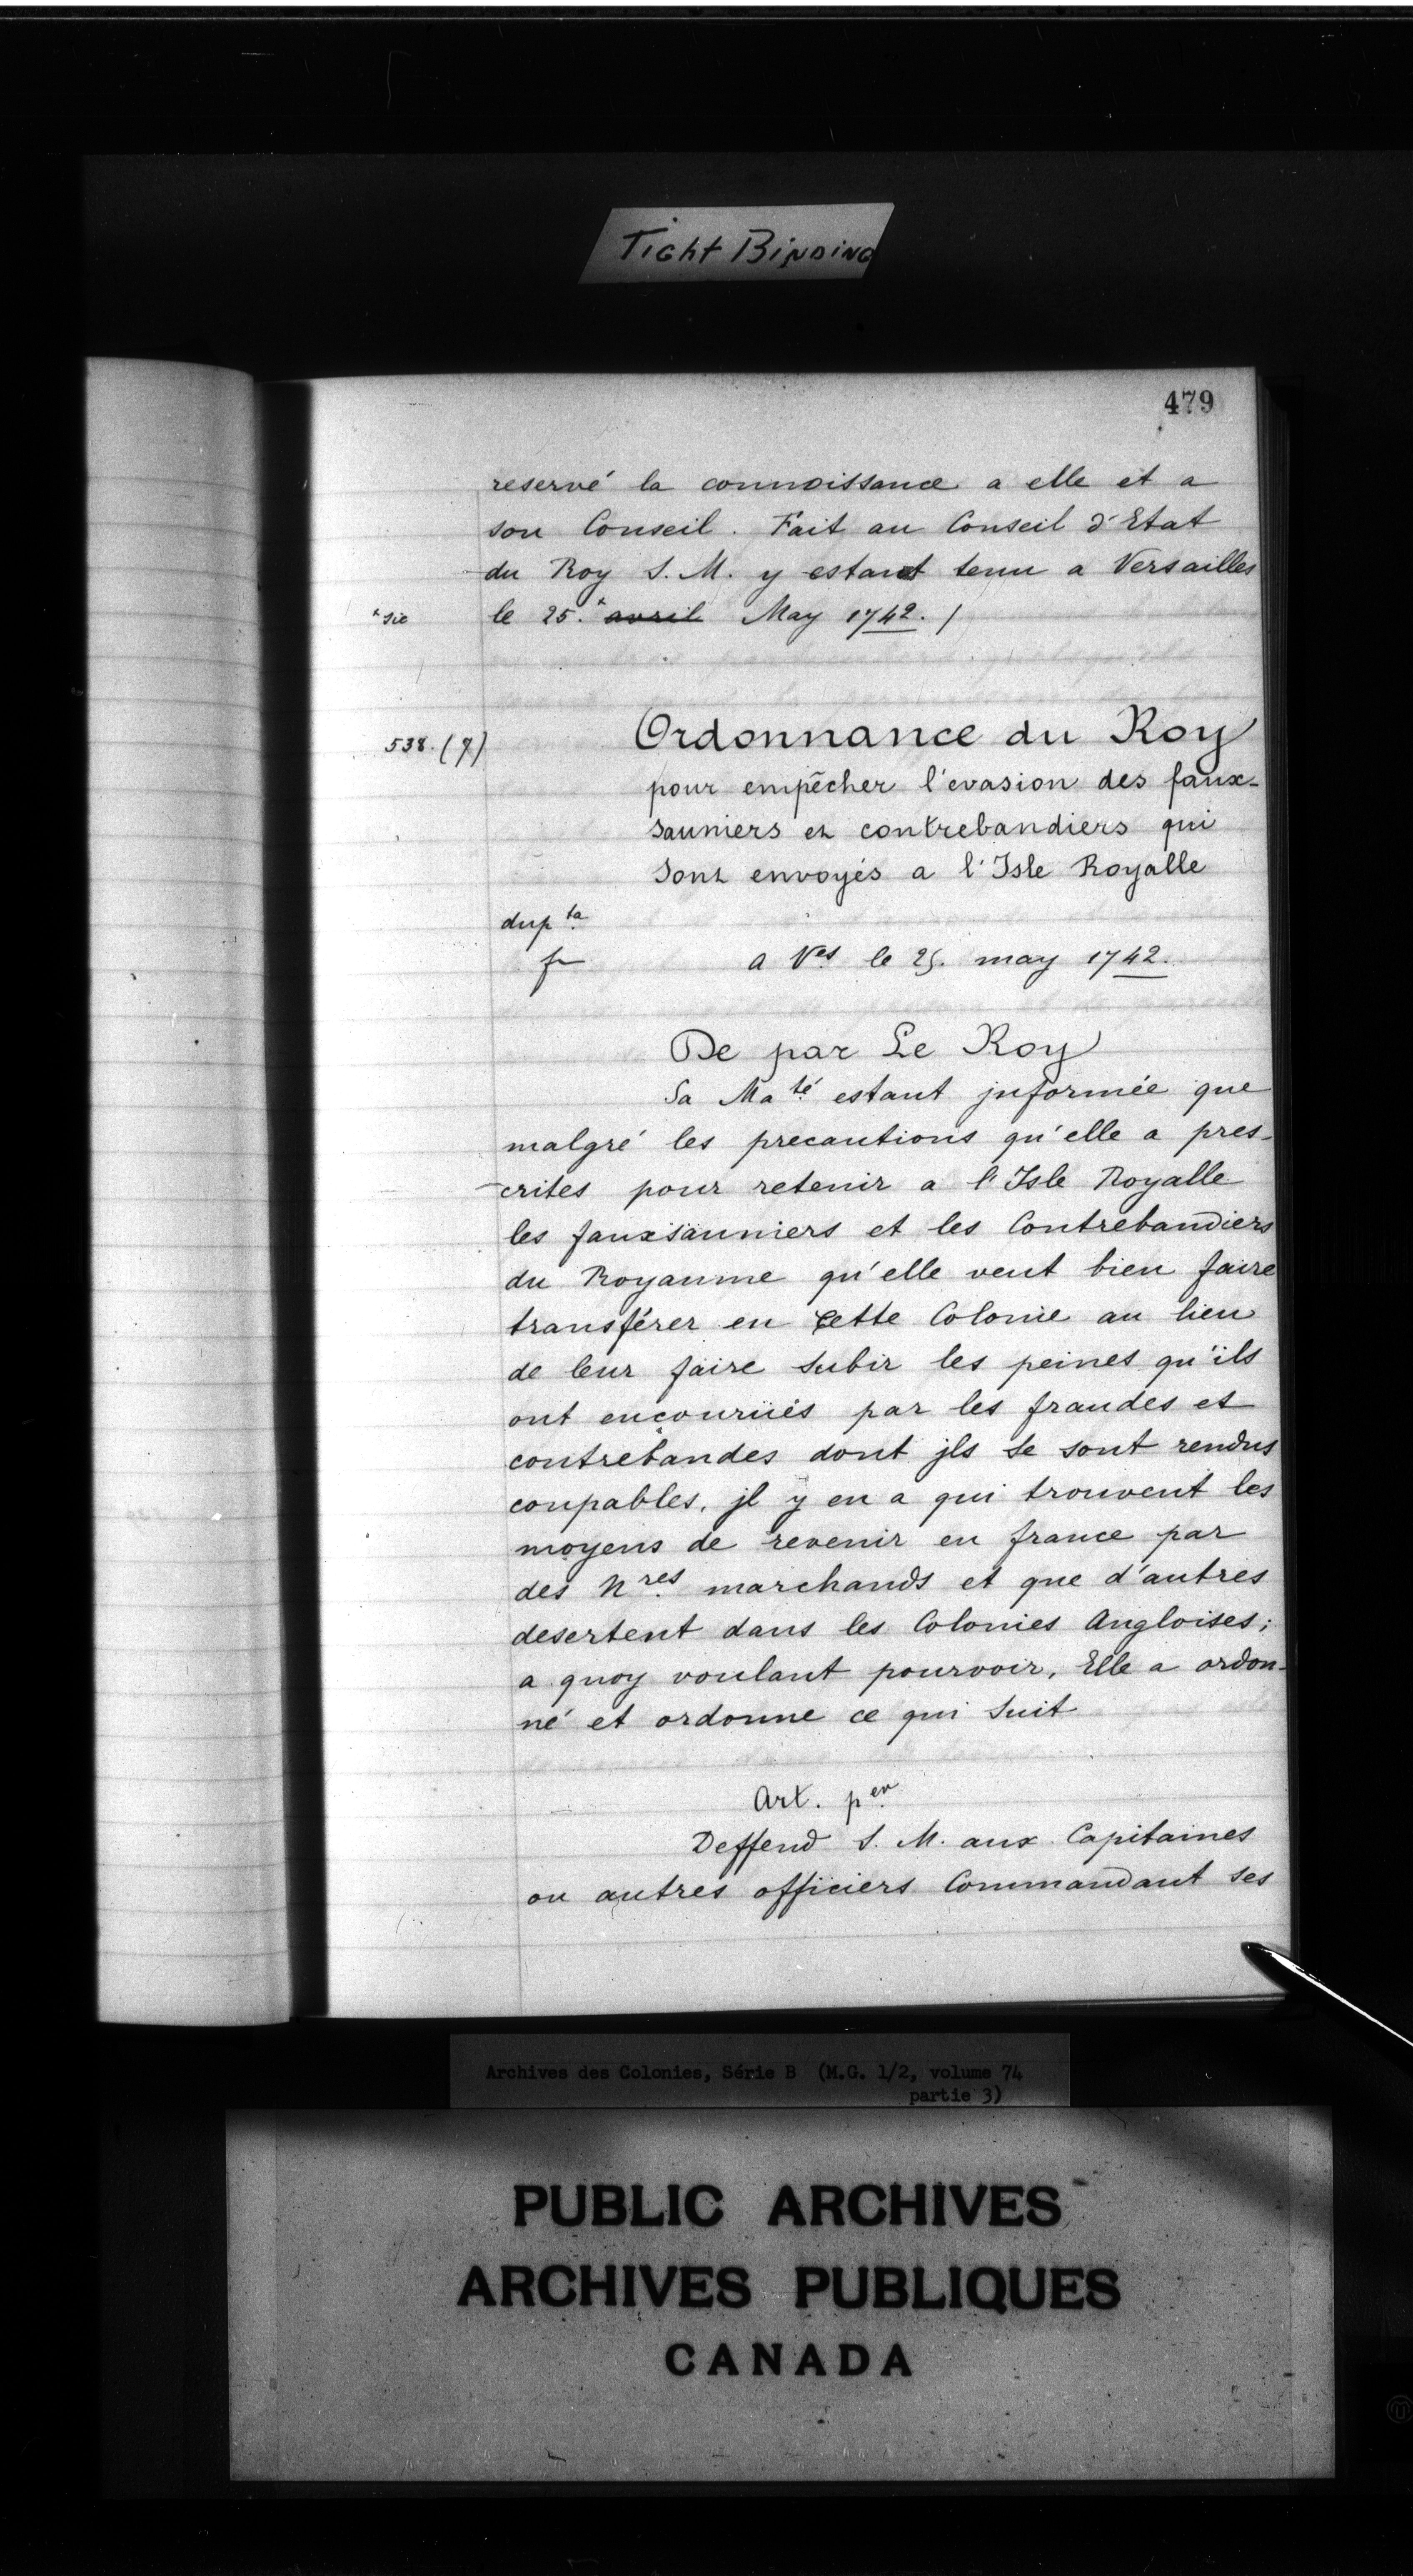 Tight Binding
479
reservé la connoissance a elle et a
son Conseil. Fait au Conseil d'Etat
du Roy S. M. y estant tenu a Versailles
x sic le 25. x avril May 1742. /
538. (7) Ordonnance du Roy
pour empêcher l'evasion des faux-
sauniers et contrebandiers qui
sont envoyés a l'Isle Royalle
dup ta.
fr a Ves le 25. may 1742.
De par Le Roy
Sa Ma té estant jnformée que
malgré les precautions qu'elle a pres-
-crites pour retenir a l'Isle Royalle
les fauxsauniers et les Contrebandiers
du Royaume qu'elle veut bien faire
transférer en cette Colonie au lieu
de leur faire subir les peines qu'ils
ont encourües par les fraudes et
contrebandes dont jls se sont rendus
coupables, jl y en a qui trouvent les
moyens de revenir en france par
des N res marchands et que d'autres
desertent dans les Colonies Angloises;
a quoy voulant pourvoir, Elle a ordon-
né et ordonne ce qui suit
Art. per
Deffend S. M. aux Capitaines
ou autres officiers Commandant ses
Archives des Colonies, Série B (M.G. 1/2, volume 74
partie 3)
PUBLIC ARCHIVES
ARCHIVES PUBLIQUES
CANADA